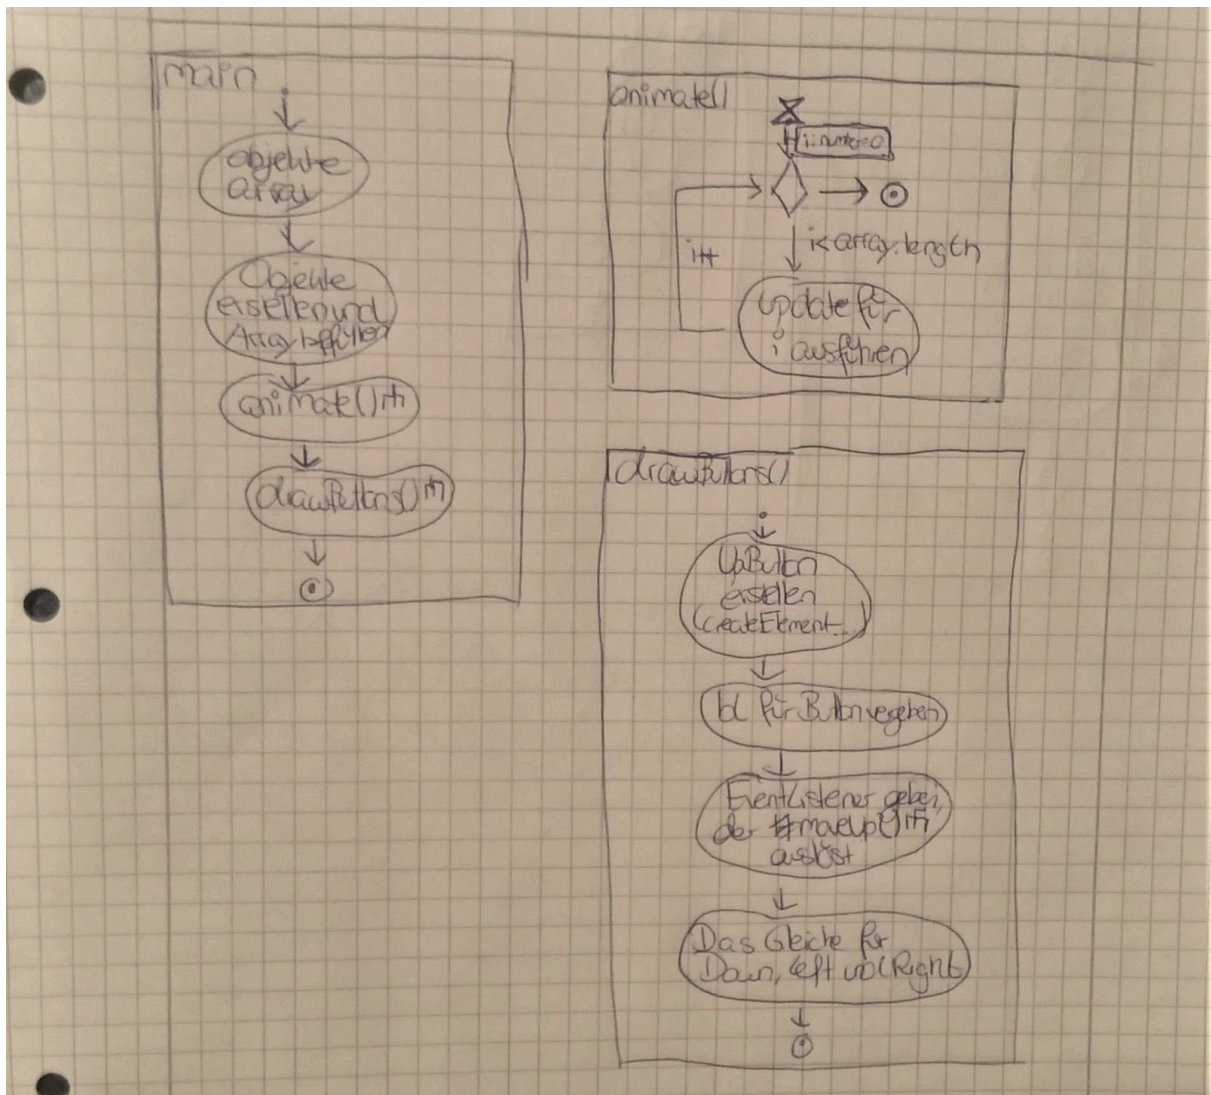 main
Objekte
array
Objekte
erstellen und
Array befüllen
animate()
drawButtons()
animate()
i:number=0
i<array.length
i++
update für
i ausführen
drawButtons()
UpButton
erstellen
(createElement...)
Id für Button vergeben
EventListener geben,
der #moveUp()
auslöst
Das Gleiche für
Down, Left und Right